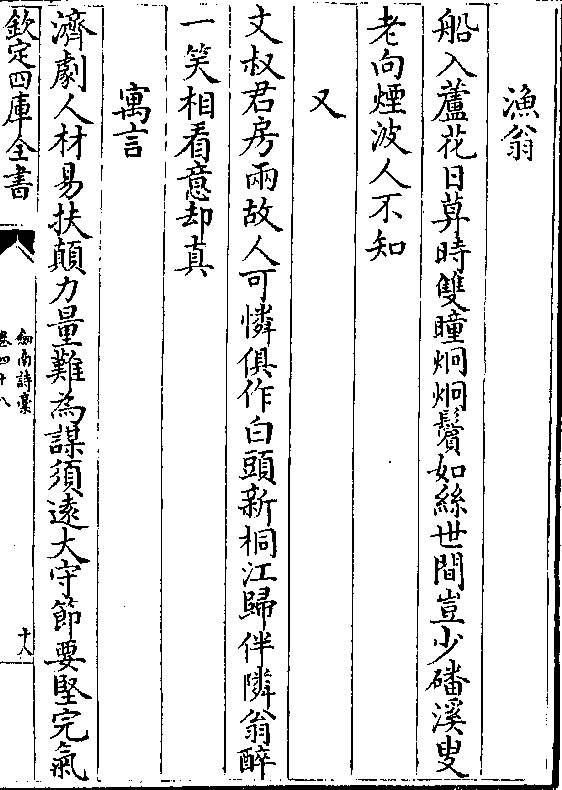 漁翁
船入蘆花日莫時雙瞳炯炯鬢如絲世間豈少磻溪叟
老向煙波人不知
又
文叔君房兩故人可憐俱作白頭新桐江歸伴隣翁醉
一笑相看意却真
寓言
濟劇人材易扶顛力量難為謀須遠大守節要堅完氣
欽定四庫全書
劒南詩藁
卷四十八
十八